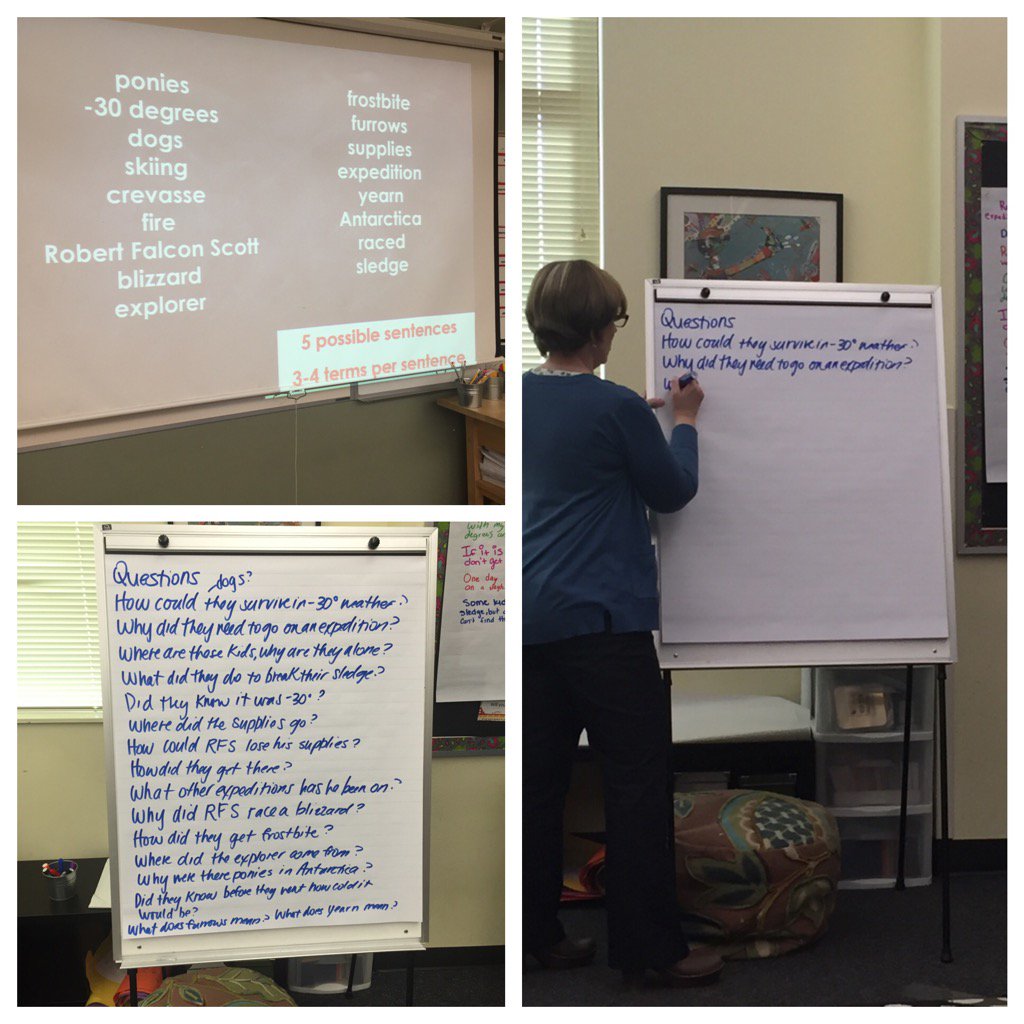 ponies
-30 degrees
dogs
skiing
crevasse
fire
Robert Falcon Scott
blizzard
explorer
frostbite
furrows
supplies
expedition
yearn
Antarctica
raced
sledge
5 possible sentences
3-4 terms per sentence
Questions
How could they survive in -30° weather?
Why did they need to go on an expedition?
W
Questions dogs?
How could they survive in -30° weather?
Why did they need to go on an expedition?
Where are those kids, why are they alone?
What did they do to break their sledge?
Did they know it was -30°?
Where did the supplies go?
How could RFS lose his supplies?
How did they get there?
What other expeditions has he been on?
Why did RFS race a blizzard?
How did they get frostbite?
Where did the explorer come from?
Why were there ponies in Antarctica?
Did they know before they went how cold it
would be?
What does furrows mean? What does yearn mean?
with my
degrees
If it is
don't get
One day
on a
Some
sledge, but
can't find